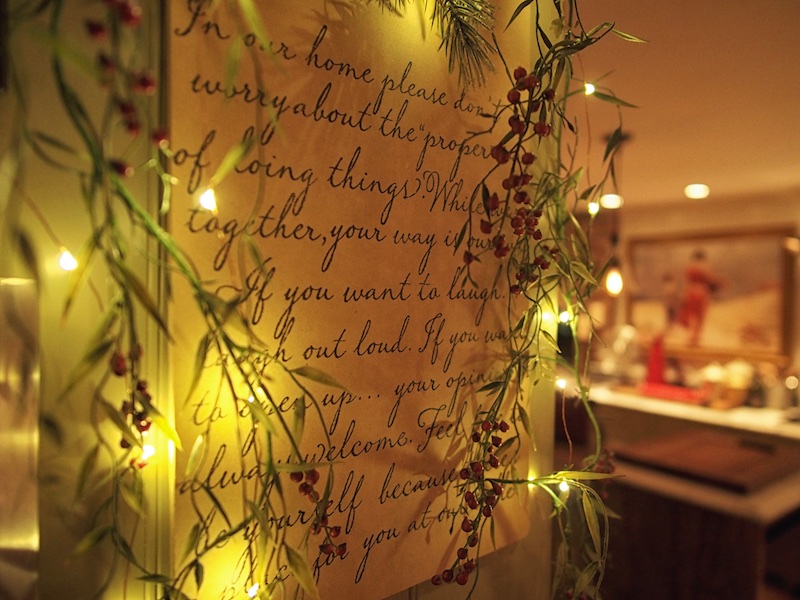 In our home please don't
worry about the "proper
of doing things". While
together, your way is ours
If you want to laugh..
laugh out loud. If you want
to open up... your opinion
always welcome. Feel
be yourself because
place for you at our